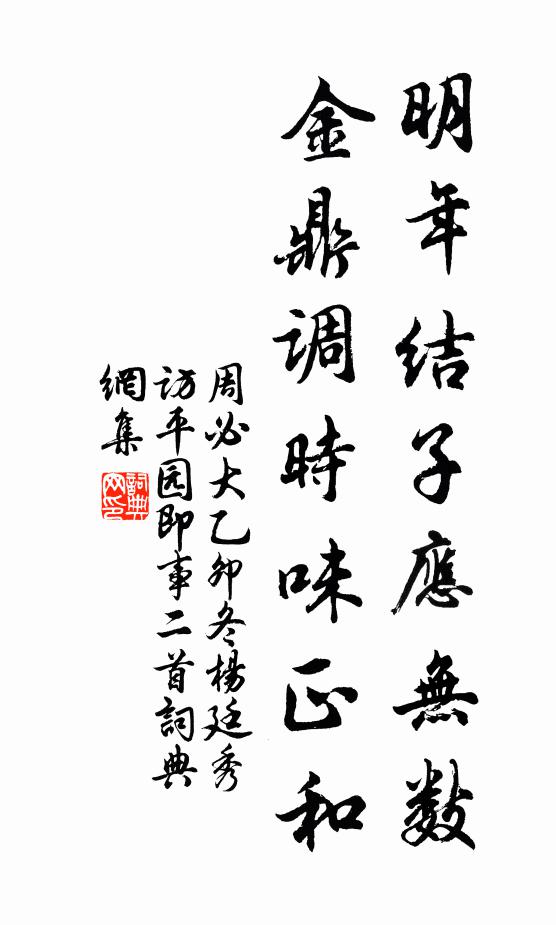 明年結子應無數
金鼎調時味正和
周必大乙卯冬楊廷秀
訪平园即事二首詞典
網集
詞典
网印